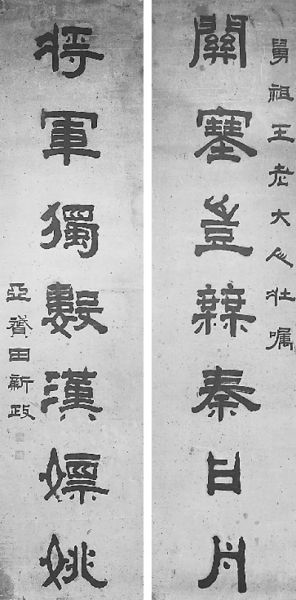 舅祖王老大人壮嘱
關塞豈無秦日月
將軍獨數漢嫖姚
亞田新政